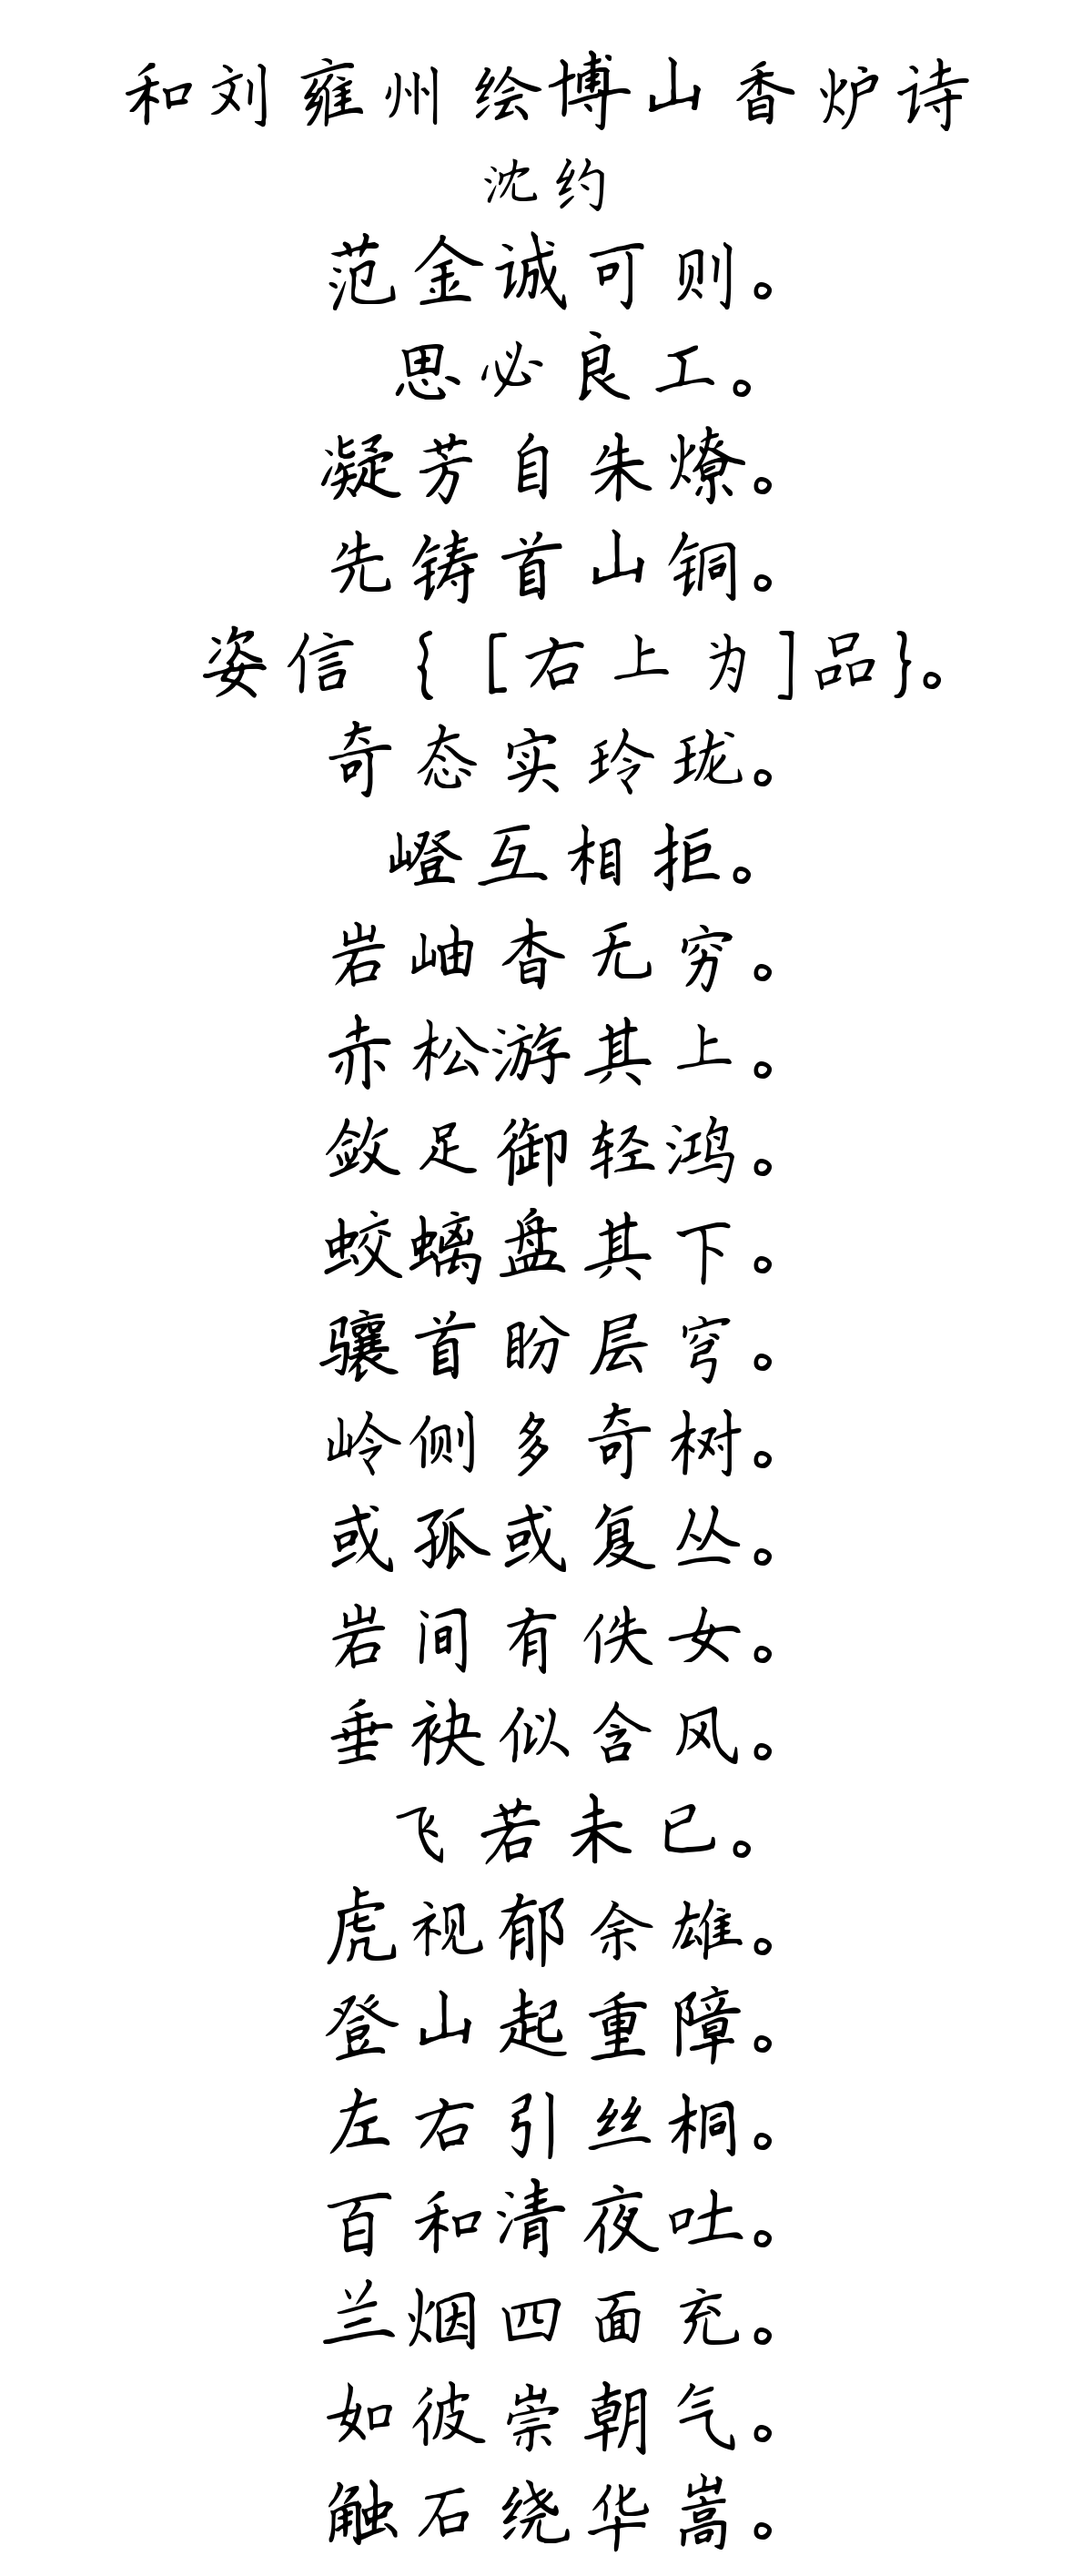 和刘雍州绘博山香炉诗
沈约
范金诚可则。
思必良工。
凝芳自朱燎。
先铸首山铜。
姿信｛［右上为］品｝。
奇态实玲珑。
嶝互相拒。
岩岫杳无穷。
赤松游其上。
敛足御轻鸿。
蛟螭盘其下。
骧首盼层穹。
岭侧多奇树。
或孤或复丛。
岩间有佚女。
垂袂似含风。
飞若未已。
虎视郁余雄。
登山起重障。
左右引丝桐。
百和清夜吐。
兰烟四面充。
如彼崇朝气。
触石绕华嵩。